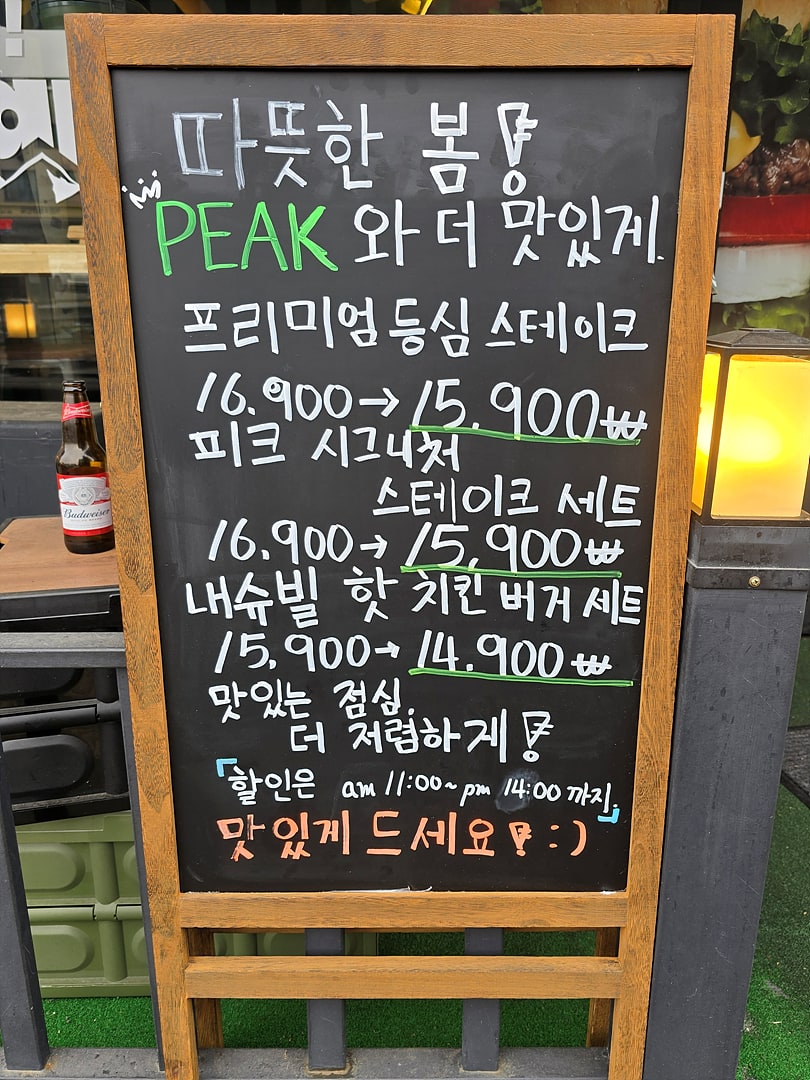 따뜻한 봄!
PEAK 와 더 맛있게.
프리미엄 등심 스테이크
16.900→15.900₩
피크 시그니처
스테이크 세트
16.900→15.900₩
내슈빌 핫 치킨 버거 세트
15.900→14.900₩
맛있는 점심.
더 저렴하게!
「할인은 am 11:00~pm 14:00 까지.」
맛있게 드세요! :)
Budweiser